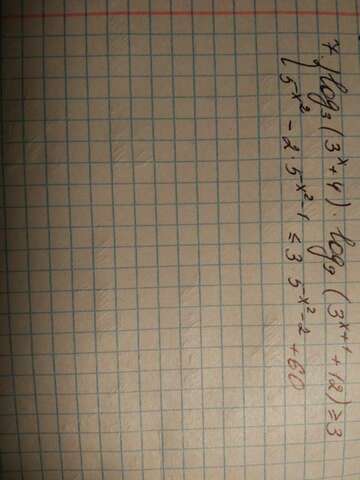 7. { log₃(3ˣ+4)·log₉(3ˣ⁺¹+12)≥3
5^x²-2·5^x²-1 ≤ 3 5^x²-2+60